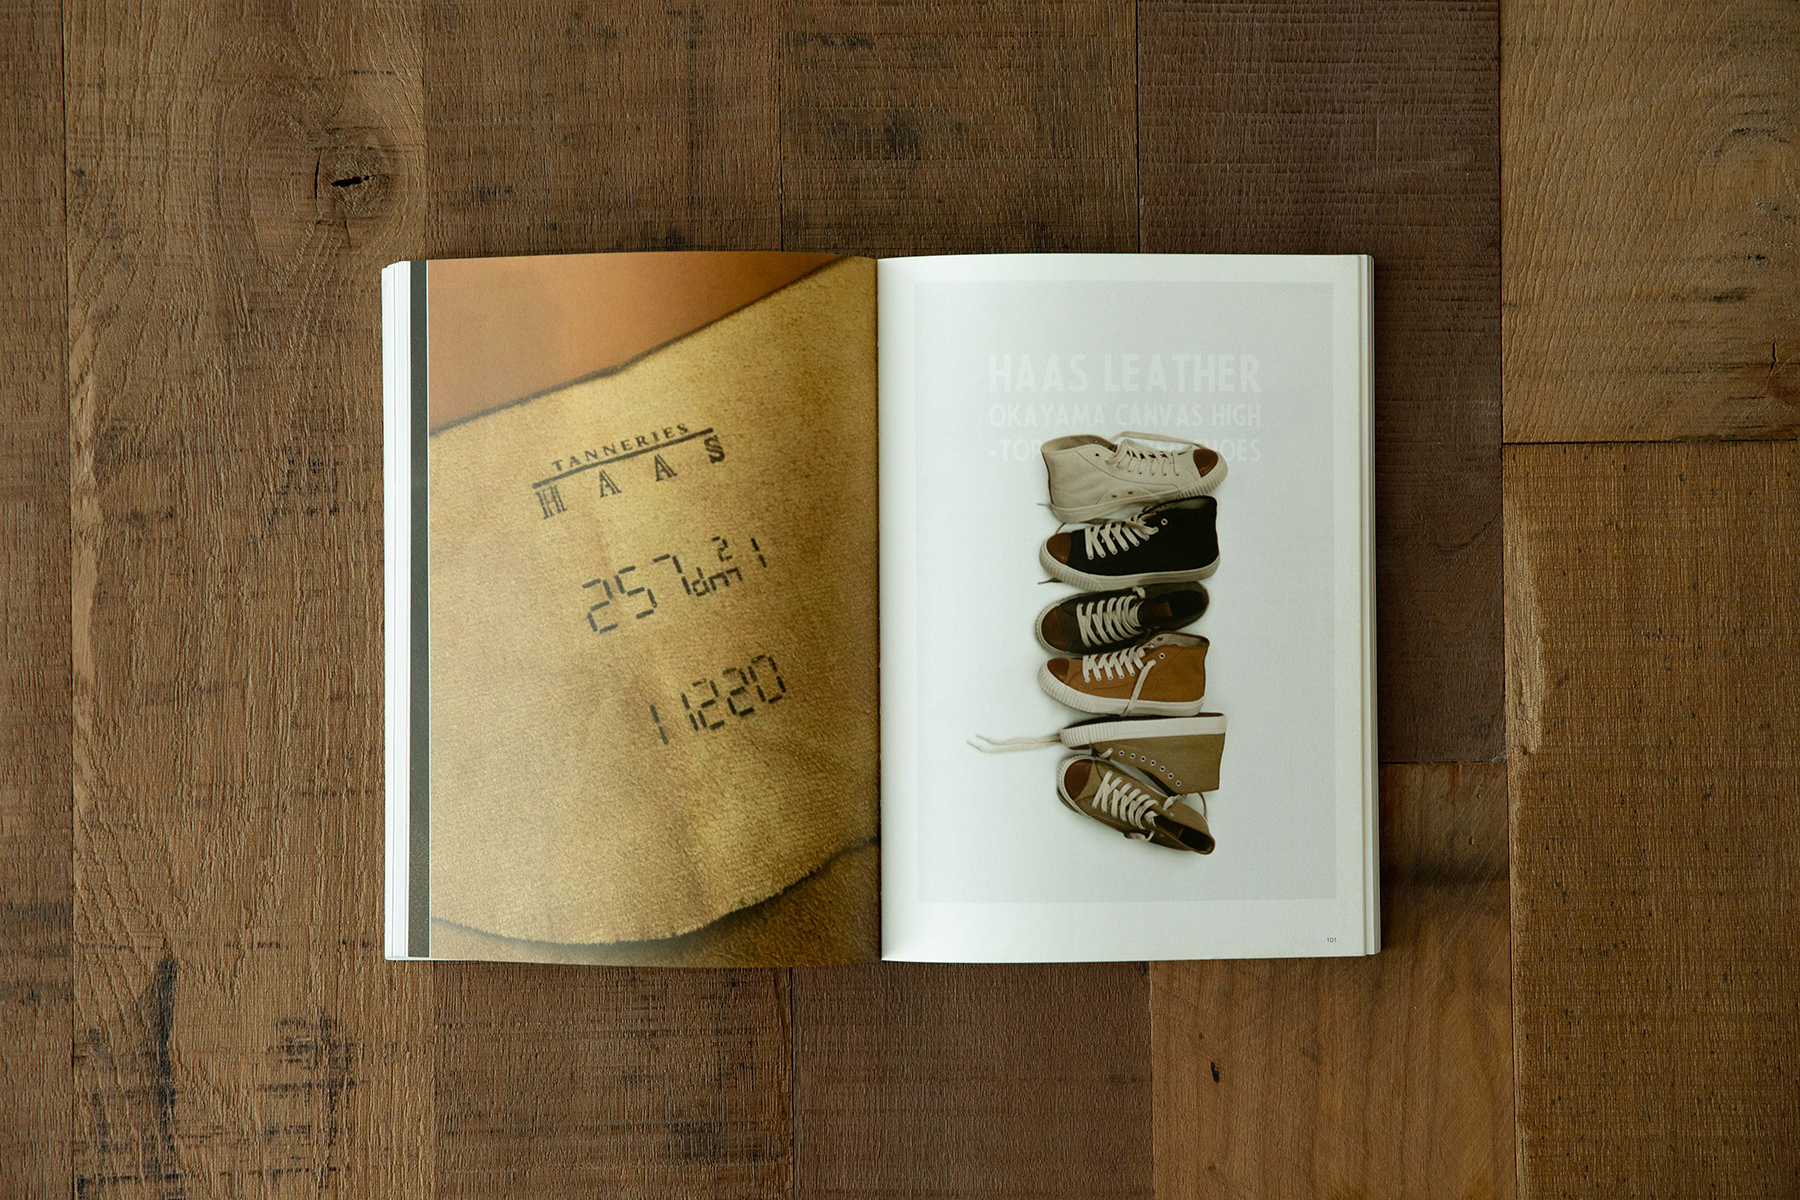 TANNERIES
HAAS
257dm² 1
11220
HAAS LEATHER
OKAYAMA CANVAS HIGH
101